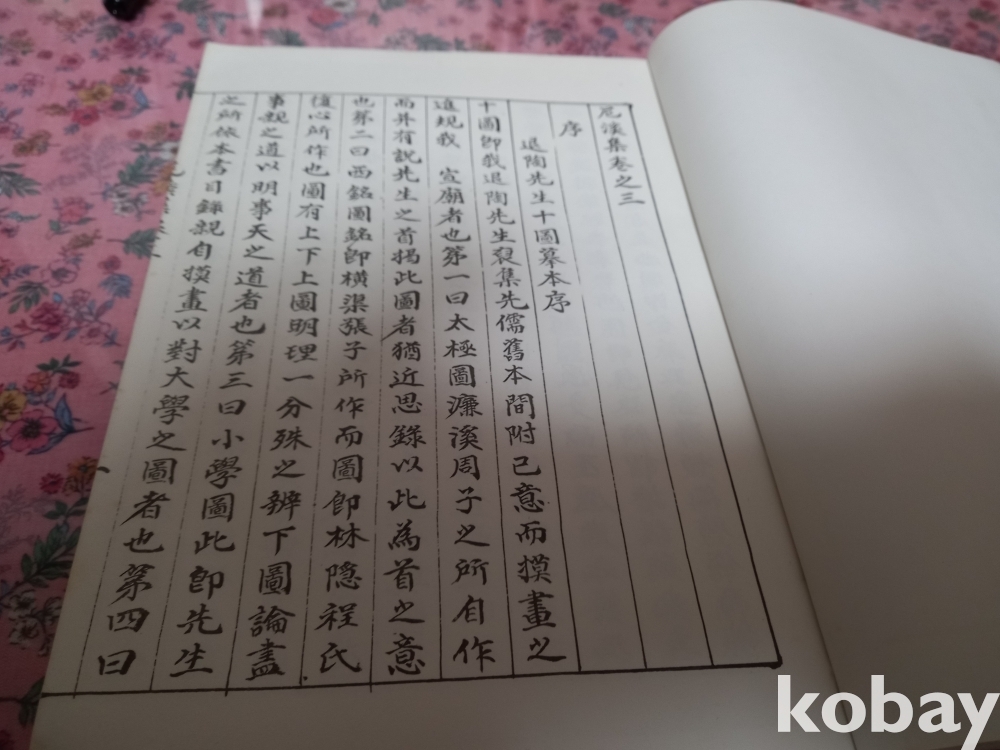 尼溪集卷之三
序
退陶先生十圖摹本序
十圖卽我退陶先生裒集先儒舊本間附己意而摸畫之
進規我 宣廟者也第一曰太極圖濂溪周子之所自作
而并有說先生之首揭此圖者猶近思錄以此為首之意
也第二曰西銘圖銘卽橫渠張子所作而圖卽林隐程氏
復心所作也圖有上下上圖明理一分殊之辨下圖論盡
事親之道以明事天之道者也第三曰小學圖此卽先生
之所依本書目錄親自摸畫以對大學之圖者也第四曰
kobay